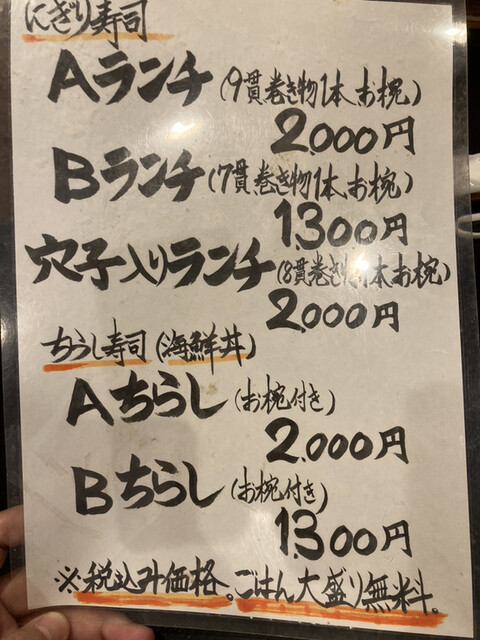 にぎり寿司
Aランチ(9貫巻き物1本、お椀)
2,000円
Bランチ(7貫巻き物1本、お椀)
1,300円
穴子入りランチ(8貫巻き物1本お椀)
2,000円
ちらし寿司(海鮮丼)
Aちらし(お椀付き)
2,000円
Bちらし(お椀付き)
1,300円
※税込み価格。ごはん大盛り無料。